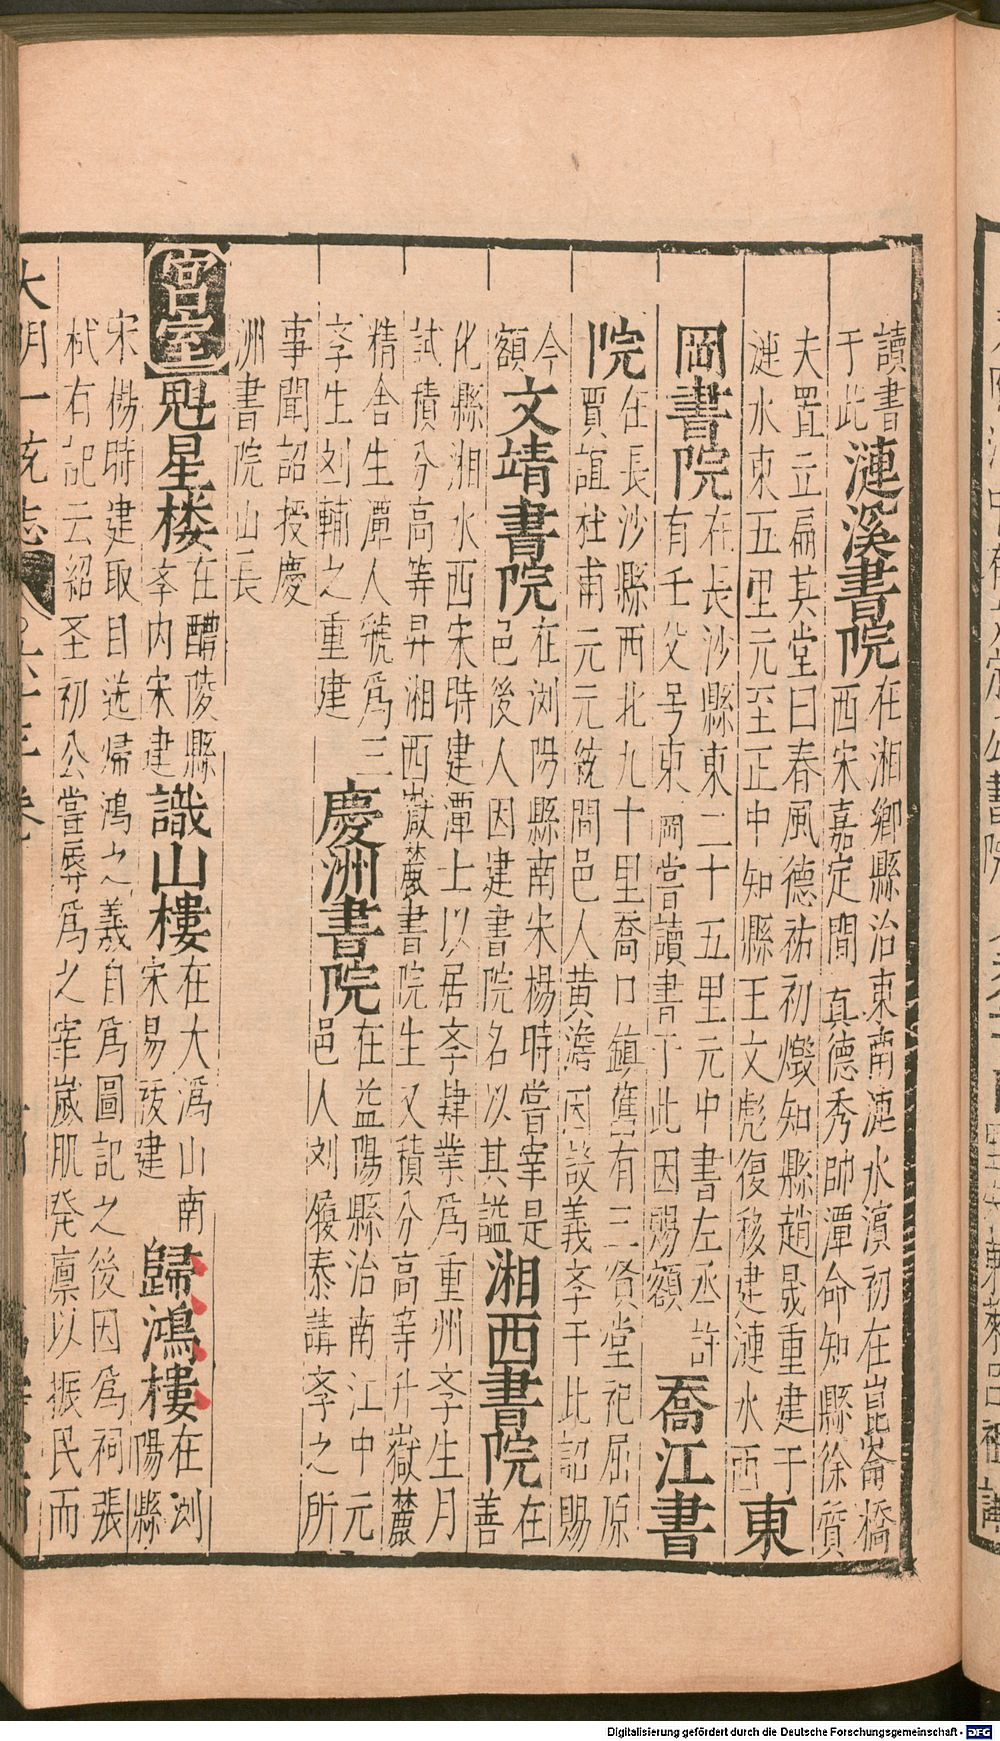 讀書
于此
漣溪書院
在湘鄉縣治東南漣水濱初在崑崙橋
西宋嘉定間真德秀帥潭命知縣徐質
夫置立扁其堂曰春風德祐初燬知縣趙晟重建于
漣水東五里元至正中知縣王文彪復移建漣水西
東
岡書院
在長沙縣東二十五里元中書左丞許
有壬父号東岡嘗讀書于此因賜額
喬江書
院
在長沙縣西北九十里喬口鎮舊有三贤堂祀屈原
賈誼杜甫元元統間邑人黄澹因設義斈于此詔賜
今
額
文靖書院
在浏陽縣南宋楊時嘗宰是
邑後人因建書院名以其謚
湘西書院
在
善
化縣湘水西宋時建潭士以居斈肆業爲重州斈生月
試積分高等昇湘西嶽麓書院生又積分高等升嶽麓
精舍生潭人號爲三
斈生刘輔之重建
慶洲書院
在益陽縣治南江中元
邑人刘履泰講斈之所
事聞詔授慶
洲書院山長
宫室
魁星楼
在醴陵縣
斈内宋建
識山樓
在大潙山南
宋易祓建
歸鴻樓
在浏
陽縣
宋楊時建取目送帰鴻之義自爲圖記之後因爲祠張
栻有記云紹圣初公嘗辱爲之宰嵗肌発廪以振民而
大明一统志
卷
Digitalisierung gefördert durch die Deutsche Forschungsgemeinschaft - DFG